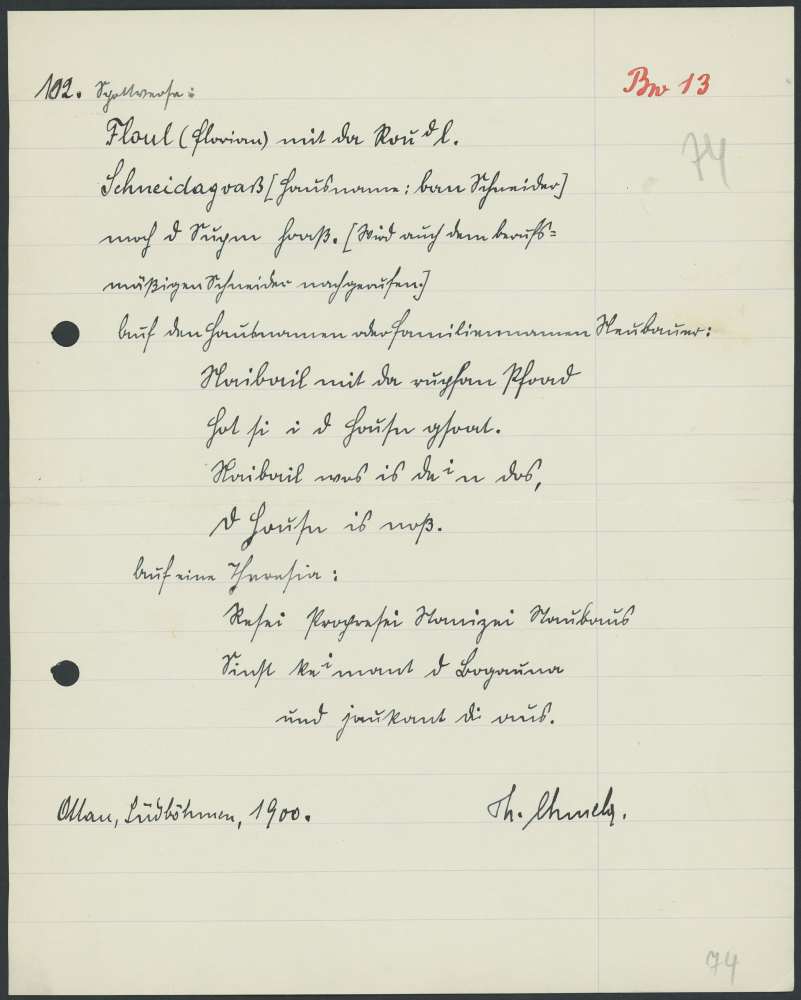 102. Spottverse: Bw 13
74
Floul (Florian) mit da Roudl.
Schneidagoaß [Hausname: ban Schneider]
moch d Suppm haaß. [Wird auch dem berufs-
mäßigen Schneider nachgerufen.]
Auf den Hausnamen oder Familiennamen Neubauer:
Naibail mit da rupfan Pfoad
Hot si i d Housn gsoat.
Naibail wos is dein dos,
d Housn is noß.
Auf eine Theresia:
Resei Propresei Stanizei Staubaus
Sinst keimant d Bogauna
und jaukant di aus.
Ottau, Südböhmen, 1900. Th. Chmela.
74